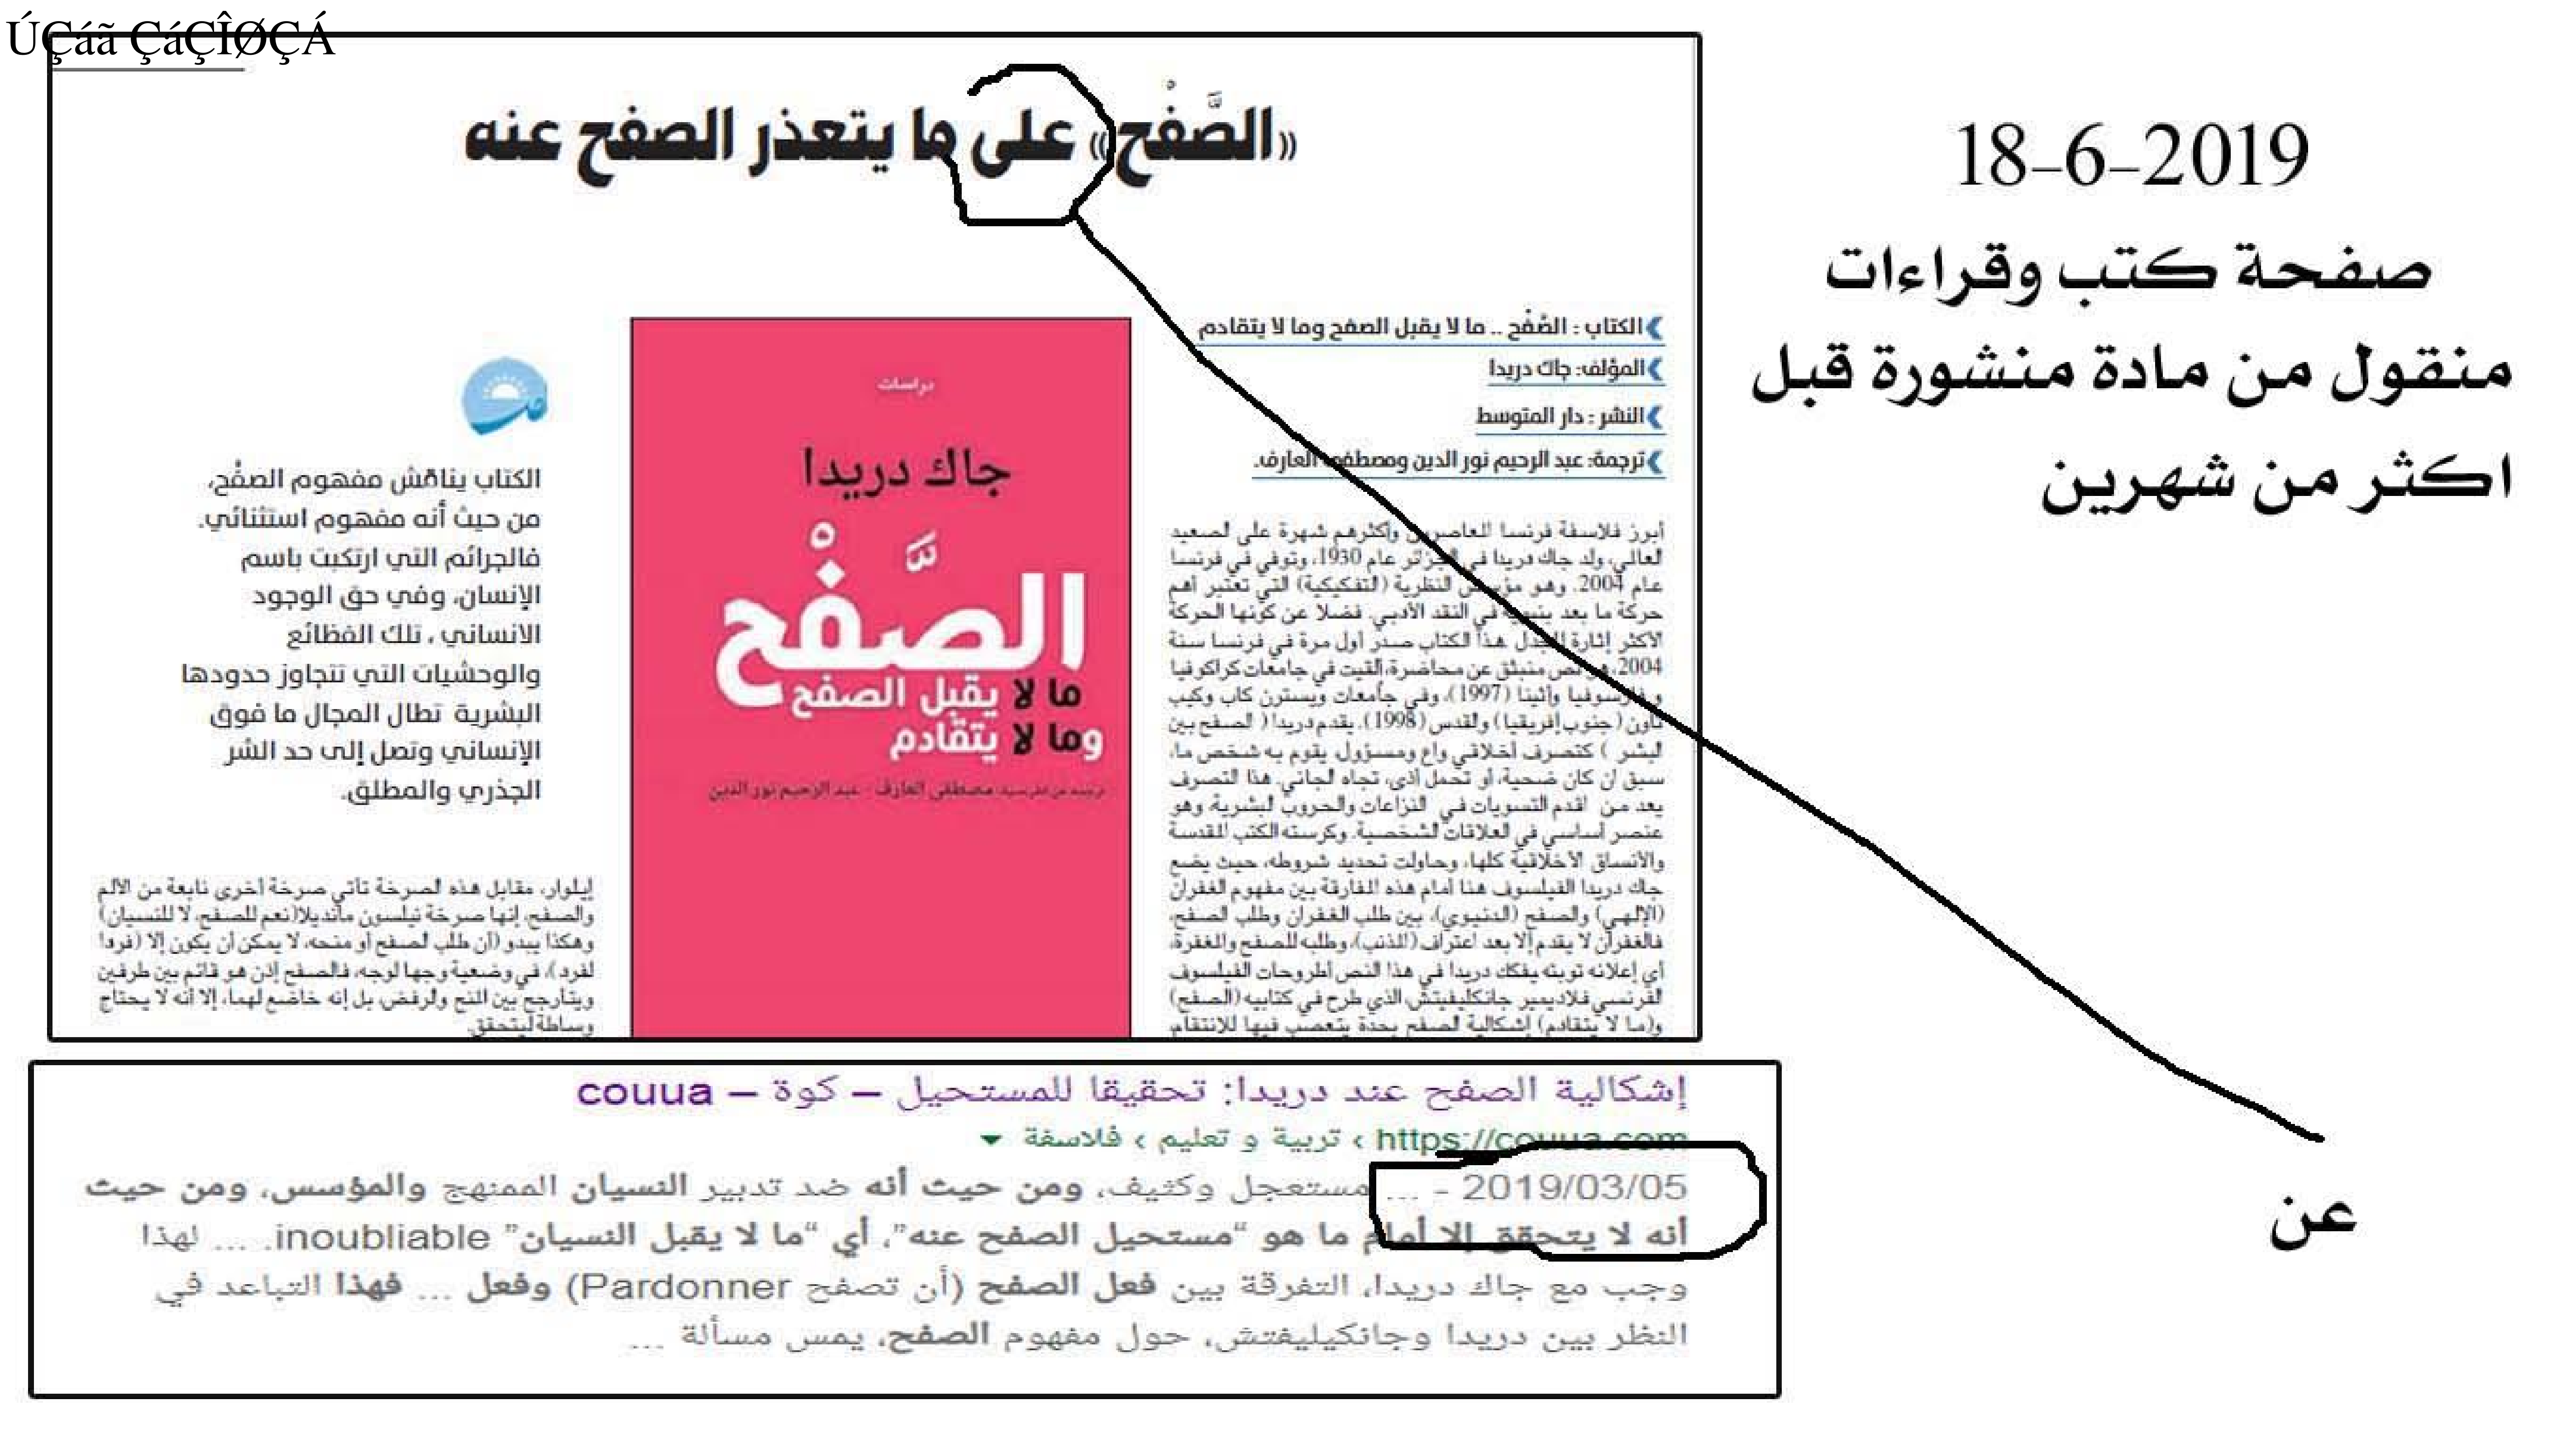 ÚÇáã ÇáÇÎØÇÁ
«الصَّفْح» على ما يتعذر الصفح عنه
18-6-2019
صفحة كتب وقراءات
منقول من مادة منشورة قبل
اكثر من شهرين
الكتاب : الصَّفْح .. ما لا يقبل الصفح وما لا يتقادم
المؤلف: جاك دريدا
النشر : دار المتوسط
ترجمة: عبد الرحيم نور الدين ومصطفى العارف.
أبرز فلاسفة فرنسا المعاصرين وأكثرهم شهرة على لصعيد
لعالي، ولد جاك دريدا في الجزائر عام 1930، وتوفي في فرنسا
عام 2004. وهو مؤسس النظرية (لتفكيكية) التي تعتبر أهم
حركة ما بعد بنيوية في النقد الأدبي. فضلا عن كونها الحركة
الأكثر إثارة للجدل. هذا الكتاب صدر أول مرة في فرنسا سنة
2004، هو نص منبثق عن محاضرة، ألقيت في جامعات كراكوفيا
و فارسوفيا وأثينا (1997)، وفي جامعات ويسترن كاب وكيب
تاون (جنوب إفريقيا) ولقدس (1998). يقدم دريدا ( لصفح بين
لبشر ) كتصرف أخلاقي واع ومسؤول، يقوم به شخص ما،
سبق ان كان ضحية، او تحمل أذى، تجاه لجاني. هذا التصرف
يعد من اقدم التسويات في النزاعات والحروب لبشرية، وهو
عنصر أساسي في لعلاقات لشخصية. وكرسته الكتب المقدسة
والأنساق الأخلاقية كلها، وحاولت تحديد شروطه، حيث يضع
جاك دريدا الفيلسوف هنا أمام هذه المفارقة بين مفهوم الغفران
(الإلهي) والصفح (الدنيوي)، بين طلب الغفران وطلب الصفح،
فالغفران لا يقدم إلا بعد اعتراف (المذنب)، وطلبه للصفح والمغفرة،
أي إعلانه توبته يفكك دريدا في هذا النص أطروحات الفيلسوف
لفرنسي فلاديمير جانكليفيتش الذي طرح في كتابيه (الصفح)
و(ما لا يتقادم) إشكالية لصفح بحدة يتعصب فيها للانتقام
دراسات
جاك دريدا
الصَّفْح
ما لا يقبل الصفح
وما لا يتقادم
ترجمه عن الفرنسية: مصطفى العارف - عبد الرحيم نور الدين
الكتاب يناقش مفهوم الصفْح،
من حيث أنه مفهوم استثنائي.
فالجرائم التي ارتكبت باسم
الإنسان، وفي حق الوجود
الانساني ، تلك الفظائع
والوحشيات التي تتجاوز حدودها
البشرية تطال المجال ما فوق
الإنساني وتصل إلى حد الشر
الجذري والمطلق.
إيلوار، مقابل هذه لصرخة تأتي صرخة أخرى نابعة من الألم
والصفح، إنها صرخة نيلسون مانديلا(نعم للصفح، لا للنسيان)
وهكذا يبدو (أن طلب لصفح أو منحه، لا يمكن أن يكون إلا (فردا
لفرد)، في وضعية وجها لوجه، فالصفح إذن هو قائم بين طرفين
ويتأرجح بين المنح ولرفض، بل إنه خاضع لهما، إلا أنه لا يحتاج
وساطة ليتحقق.
إشكالية الصفح عند دريدا: تحقيقا للمستحيل – كوة – couua
https://couua.com › تربية و تعليم › فلاسفة
2019/03/05 - ... مستعجل وكثيف، ومن حيث أنه ضد تدبير النسيان الممنهج والمؤسس، ومن حيث
أنه لا يتحقق إلا أمام ما هو “مستحيل الصفح عنه”، أي “ما لا يقبل النسيان” inoubliable. ... لهذا
وجب مع جاك دريدا، التفرقة بين فعل الصفح (أن تصفح Pardonner) وفعل ... فهذا التباعد في
النظر بين دريدا وجانكيليفتش، حول مفهوم الصفح، يمس مسألة ...
عن